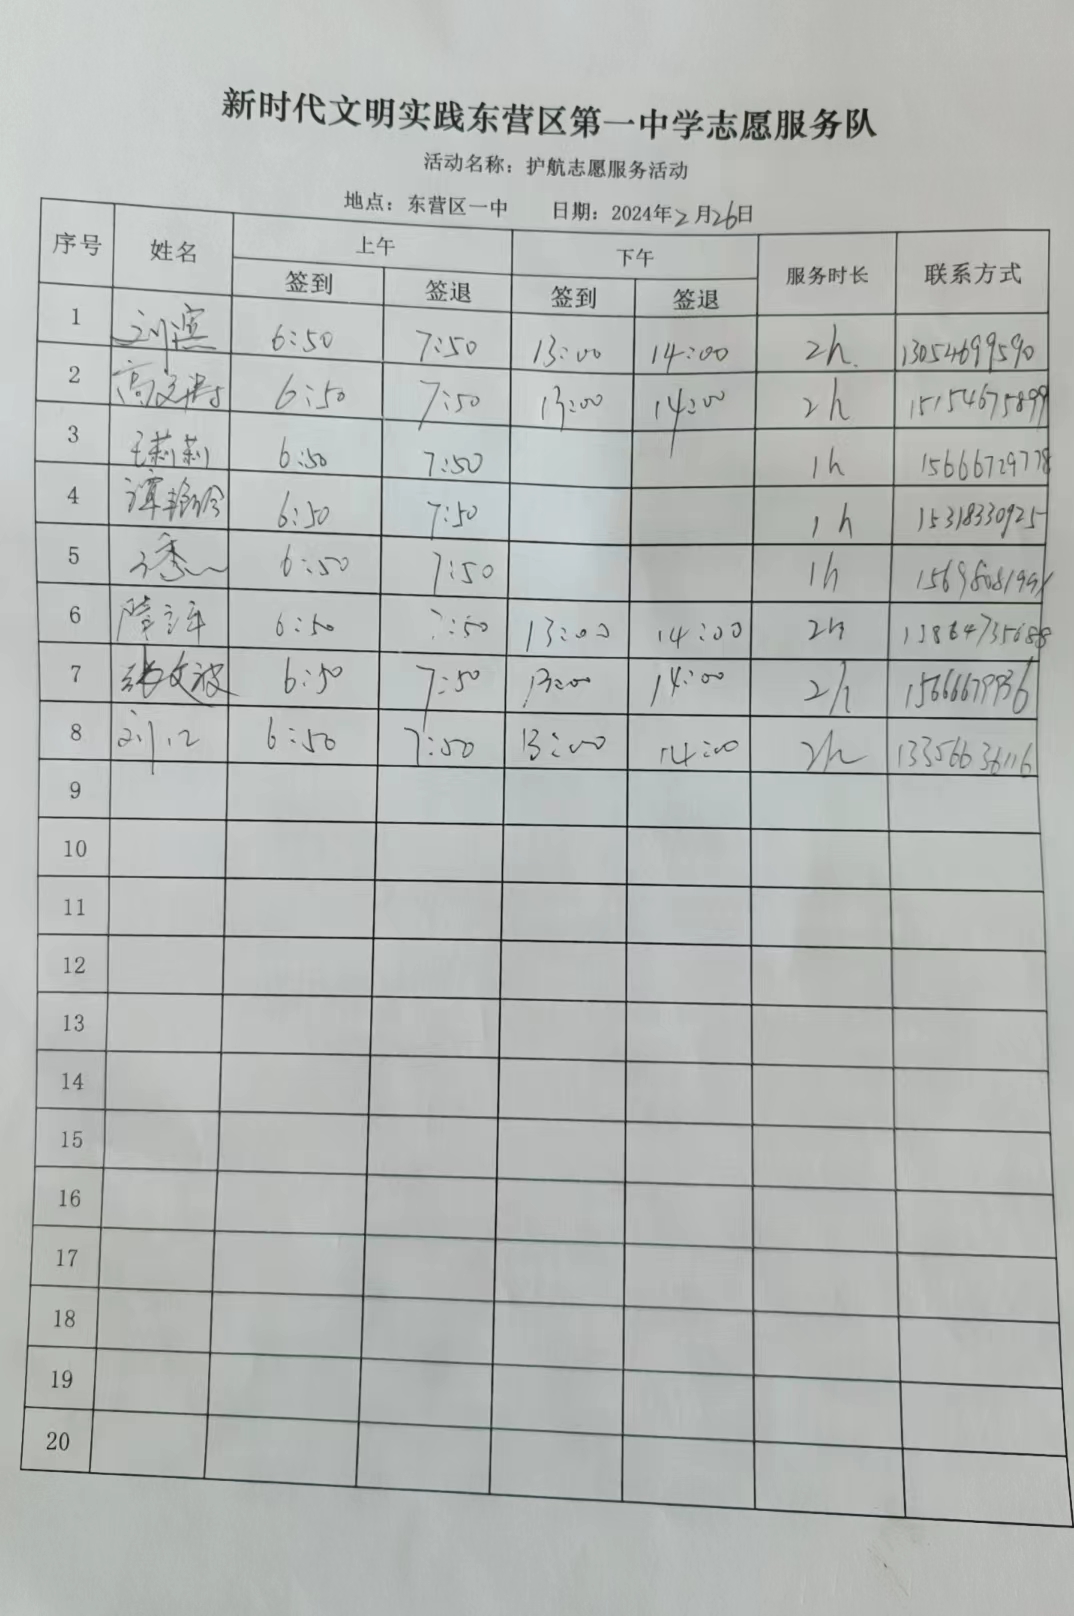 新时代文明实践东营区第一中学志愿服务队
活动名称：护航志愿服务活动
地点：东营区一中 日期：2024年2月26日
序号 姓名 上午 下午 服务时长 联系方式
签到 签退 签到 签退
1 刘滨 6:50 7:50 13:00 14:00 2h. 13054699590
2 6:50 7:50 13:00 14:00 2h 15154675899
3 王莉莉 6:50 7:50 1h 15666729778
4 谭艳玲 6:50 7:50 1h 15318330925
5 6:50 7:50 1h
6 6:50 7:50 13:00 14:00 2h 13864735688
7 张文波 6:50 7:50 13:00 14:00 2h
8 6:50 7:50 13:00 14:00 2h 13356636116
9
10
11
12
13
14
15
16
17
18
19
20